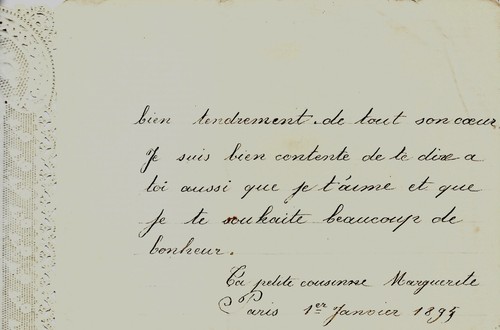 bien tendrement de tout son cœur.
Je suis bien contente de te dire a
toi aussi que je t'aime et que
je te souhaite beaucoup de
bonheur.
Ta petite cousinne Marguerite
Paris 1er Janvier 1895